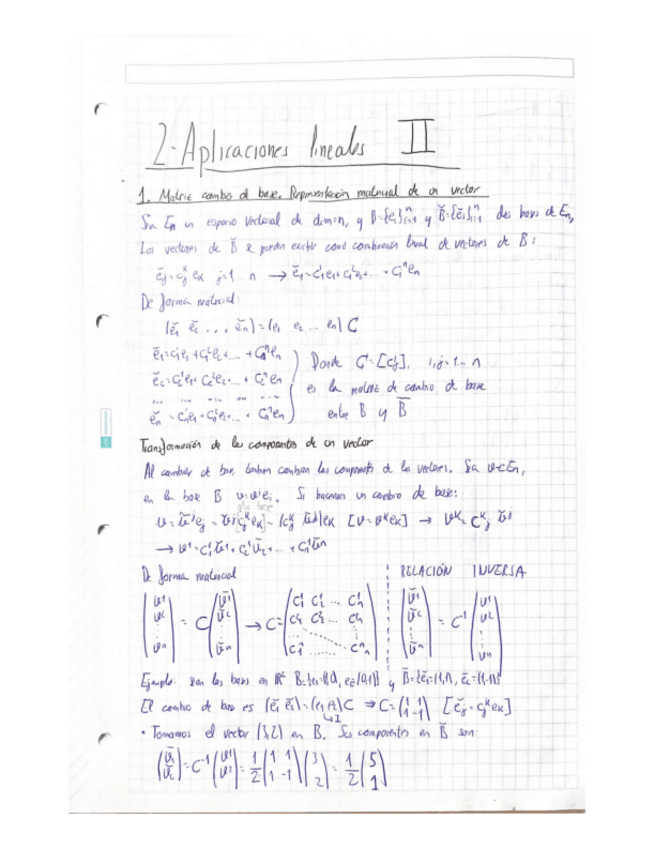 2-Aplicaciones lineales II
1. Matriz cambio de base. Representación matricial de un vector
Sea En un espacio vectorial de dim=n, y B={ei}ⁿi=1 y B̃={ẽi}ⁿi=1 dos bases de En,
Los vectores de B̃ se pueden escribir como combinación lineal de vectores de B:
ẽj = cjᵏ eₖ j=1 ... n → ẽ₁=c₁¹e₁+c₁²e₂+... + c₁ⁿen
De forma matricial:
(ẽ₁ ẽ₂ ... ẽn)=(e₁ e₂ ... en) C
ẽ₁=c₁¹e₁+c₁²e₂+... + c₁ⁿen
ẽ₂=c₂¹e₁+c₂²e₂+... + c₂ⁿen
... ... ... ...
ẽn = cn¹e₁+cn²e₂+... + cnⁿen
Donde C=[cij], i,j=1... n
es la matriz de cambio de base
entre B y B̄
Transformación de las componentes de un vector
Al cambiar de base, también cambian las componentes de los vectores. Sea v∈En,
en la base B v=vⁱei. Si hacemos un cambio de base:
v=ṽʲẽj = ṽʲ[cjᵏ eₖ] = [cjᵏ ṽʲ]eₖ [v=vᵏeₖ] → vᵏ=Cᵏj ṽʲ
→ v¹=c₁¹ṽ¹+c₂¹ṽ²+... + cn¹ṽⁿ
De forma matricial
RELACIÓN INVERSA
(v¹ v² ⋮ vⁿ) = C (ṽ¹ ṽ² ⋮ ṽⁿ) → C= (c₁¹ c₂¹ ... cn¹ c₁² c₂² ... cn² ... c₁ⁿ ... cnⁿ)
(ṽ¹ ṽ² ⋮ ṽⁿ) = C⁻¹ (v¹ v² ⋮ vⁿ)
Ejemplo: sean las bases en R² B={e₁=(1,0), e₂=(0,1)} y B̃={ẽ₁=(1,1), ẽ₂=(1,-1)}
El cambio de base es (ẽ₁ ẽ₂)=(e₁ e₂)C → C=(1 1 1 -1) [ẽj = cjᵏeₖ]
↳I
• Tomamos el vector (3,2) en B. Sus componentes en B̃ son:
(ṽ₁ ṽ₂)=C⁻¹(v¹ v²)= 1/2 (1 1 1 -1)(3 2)= 1/2 (5 1)